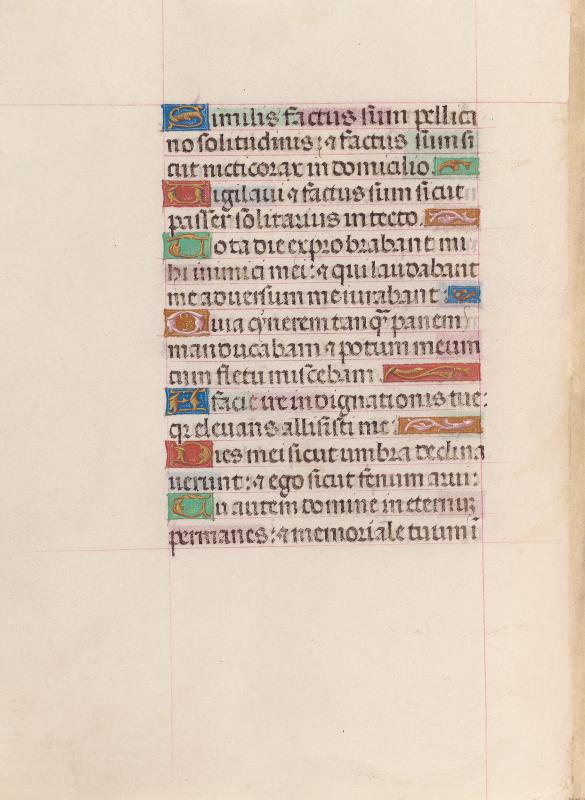 Similis factus sum pellica
no solitudinis: ⁊ factus sum si
cut nicticorax in domicilio.
Vigilaui ⁊ factus sum sicut
passer solitarius in tecto.
Tota die exprobrabant mi
hi inimici mei: ⁊ qui laudabant
me aduersum me iurabant:
Quia cynerem tanq̃ panem
manducabam ⁊ potum meum
cum fletu miscebam.
A facie ire indignationis tue:
qr eleuans allisisti me:
Dies mei sicut umbra declina
uerunt: ⁊ ego sicut fenum arui:
Tu autem domine in eternuz
permanes: ⁊ memoriale tuum ī